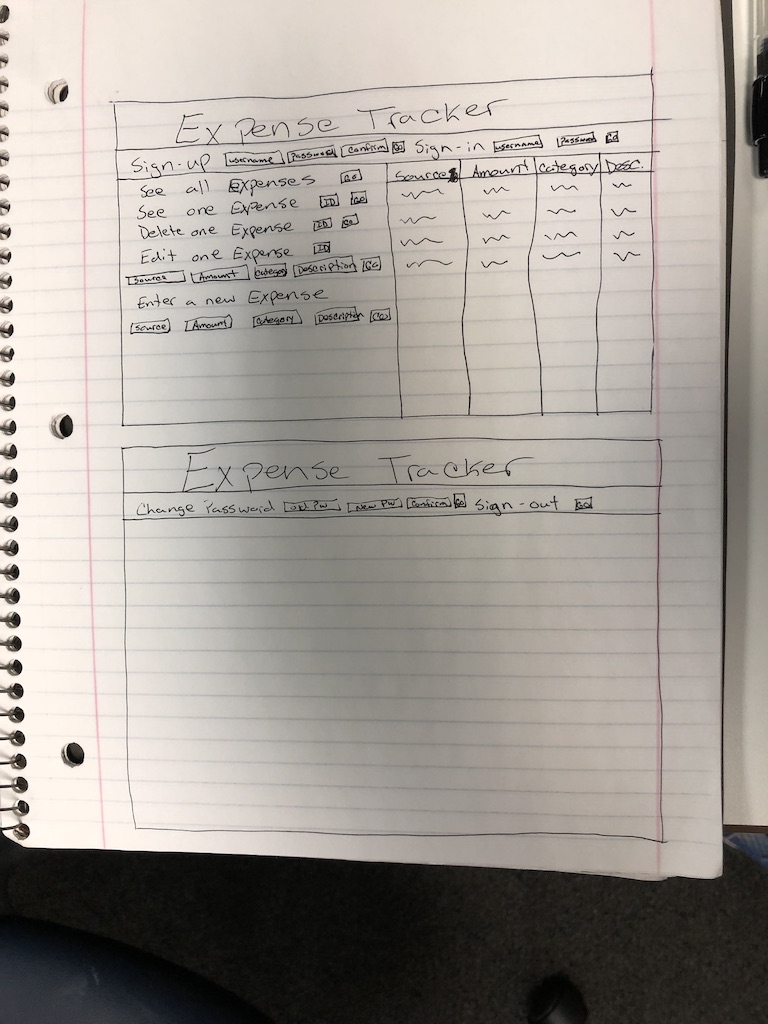 Expense Tracker
Sign-up username Password Confirm Go Sign-in username Password Go
See all Expenses Go
Source Amount Category Desc.
See one Expense ID Go
Delete one Expense ID Go
Edit one Expense ID
Source Amount Category Description Go
Enter a new Expense
Source Amount Category Description Go
Expense Tracker
Change Password old Pw New PW Confirm Go Sign-out Go